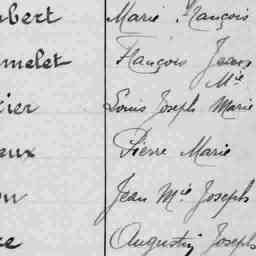 bert Marie François
melet François Jean
Mie
ier Louis Joseph Marie
eux Pierre Marie
ou Jean Mie Joseph
ce Augustin Joseph